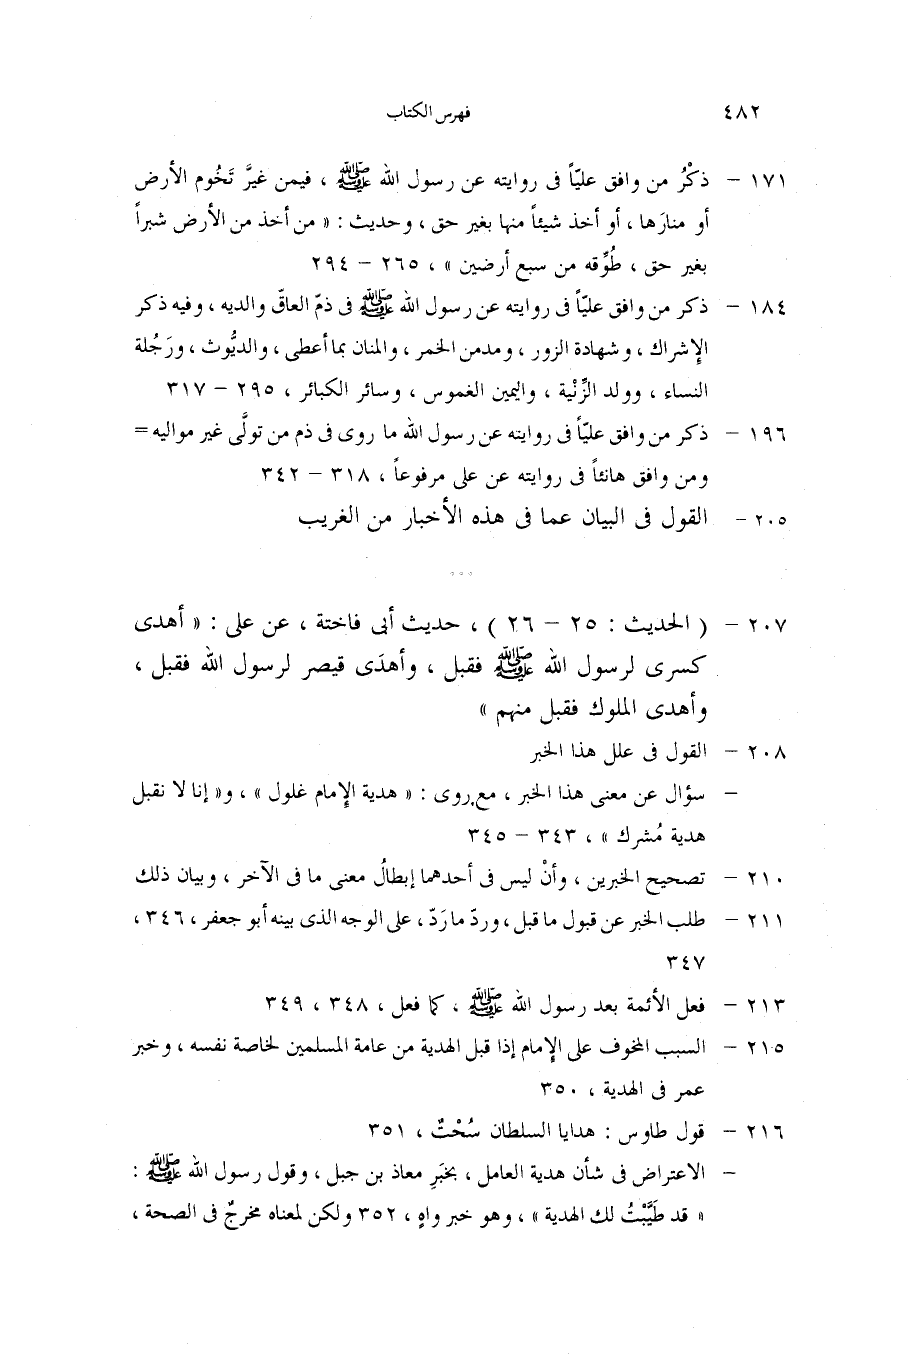 ٤٨٢ فهرس الكتاب
١٧١ - ذكْرُ من وافق عليّاً فى روايته عن رسول الله ﷺ ، فيمن غيَّر تَخُوم الأرض
أو منارَها ، أو أخذ شيئاً منها بغير حق ، وحديث : « من أخذ من الأرض شبراً
بغير حق ، طُوِّقه من سبع أرضين » ، ٢٦٥ - ٢٩٤
١٨٤ - ذكر من وافق عليّاً فى روايته عن رسول الله ﷺ فى ذمّ العاقّ والديه ، وفيه ذكر
الإشراك ، وشهادة الزور ، ومدمن الخمر ، والمنان بما أعطى ، والديُّوث ، ورَجُلة
النساء ، وولد الزِّنْية ، واليمين الغموس ، وسائر الكبائر ، ٢٩٥ - ٣١٧
١٩٦ - ذكر من وافق عليّاً فى روايته عن رسول الله ما روى فى ذم من تولَّى غير مواليه =
ومن وافق هانئاً فى روايته عن على مرفوعاً ، ٣١٨ - ٣٤٢
٢٠٥ - القول فى البيان عما فى هذه الأخبار من الغريب
° ° °
٢٠٧ - ( الحديث : ٢٥ - ٢٦ ) ، حديث أبى فاختة ، عن على : « أهدى
كسرى لرسول الله ﷺ فقبل ، وأهدَى قيصر لرسول الله فقبل ،
وأهدى الملوك فقبل منهم »
٢٠٨ - القول فى علل هذا الخبر
- سؤال عن معنى هذا الخبر ، مع روى : « هدية الإمام غلول » ، و« إنا لا نقبل
هدية مُشرك » ، ٣٤٣ - ٣٤٥
٢١٠ - تصحيح الخبرين ، وأنْ ليس فى أحدهما إبطالُ معنى ما فى الآخر ، وبيان ذلك
٢١١ - طلب الخبر عن قبول ما قبل ، وردّ ما رَدّ ، على الوجه الذى بينه أبو جعفر ، ٣٤٦ ،
٣٤٧
٢١٣ - فعل الأئمة بعد رسول الله ﷺ ، كما فعل ، ٣٤٨ ، ٣٤٩
٢١٥ - السبب المخوف على الإمام إذا قبل الهدية من عامة المسلمين لخاصة نفسه ، وخبر
عمر فى الهدية ، ٣٥٠
٢١٦ - قول طاوس : هدايا السلطان سُحْتٌ ، ٣٥١
- الاعتراض فى شأن هدية العامل ، بخبَرِ معاذ بن جبل ، وقول رسول الله ﷺ :
« قد طَيَّبْتُ لك الهدية » ، وهو خبر واهٍ ، ٣٥٢ ولكن لمعناه مخرجٌ فى الصحة ،